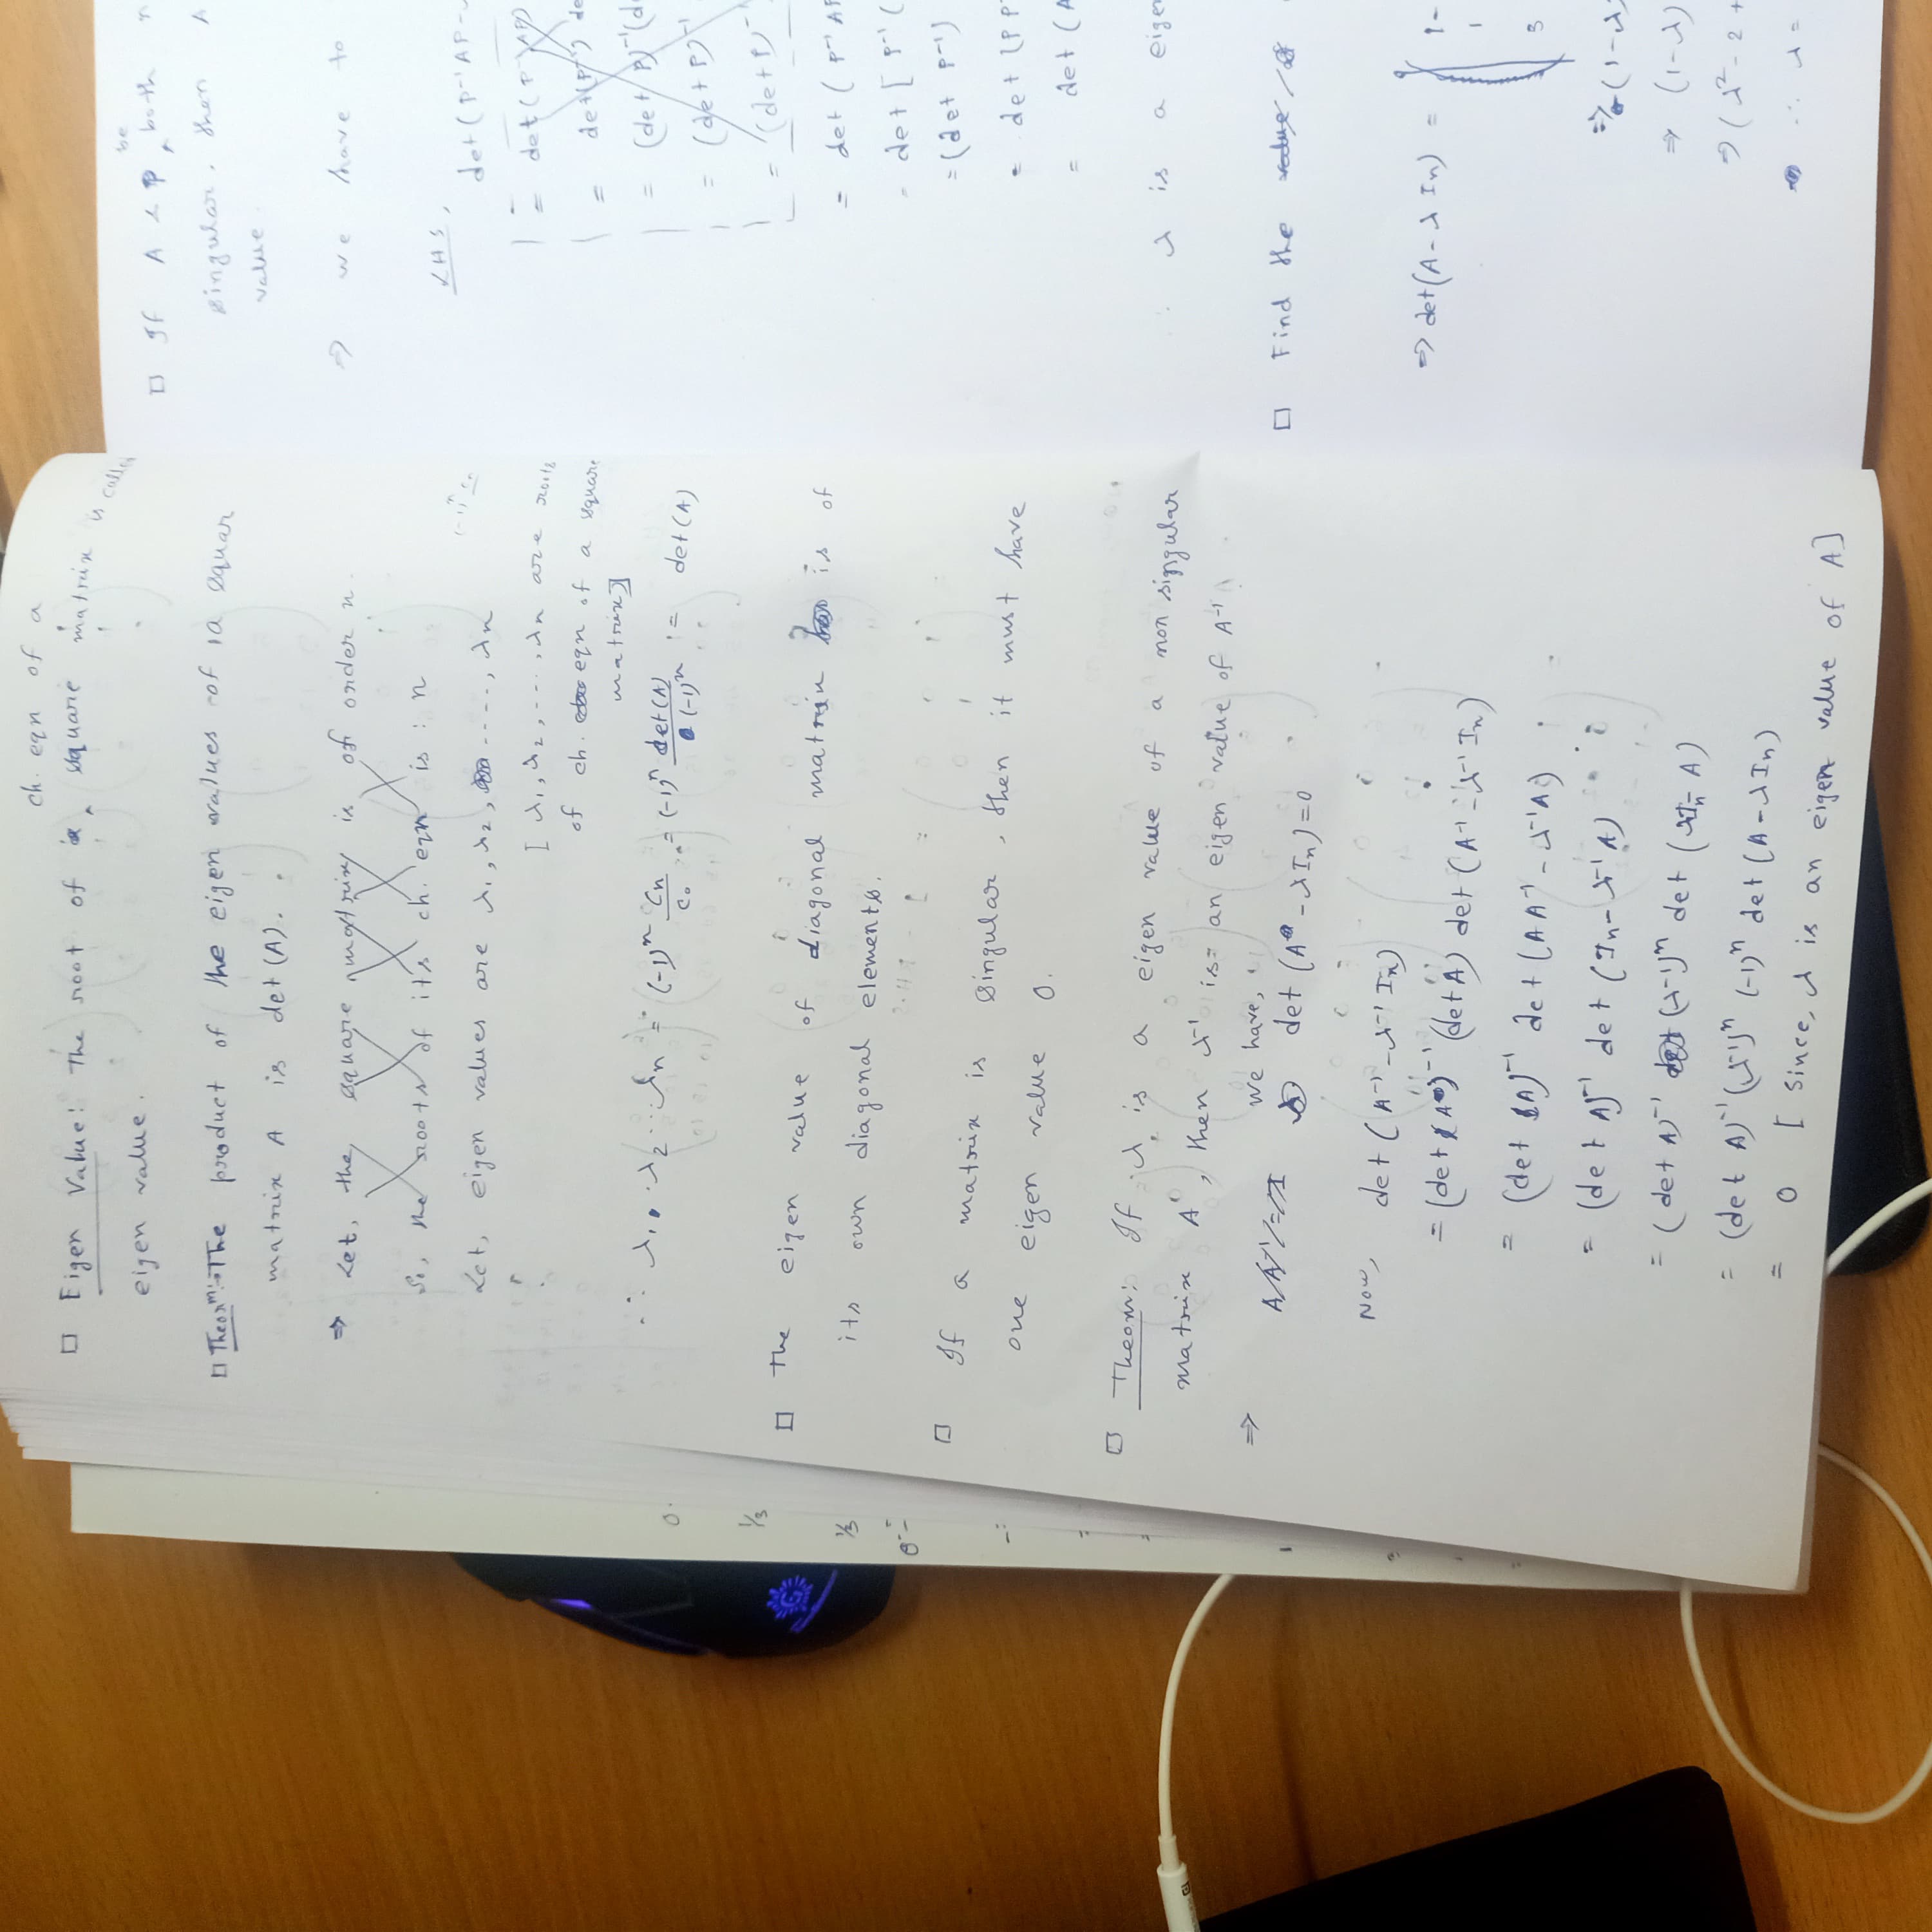 ch. eqn of a
□ Eigen Value: The root of a square matrix is called
eigen value.
□ Theorm:- The product of the eigen values of a squar
matrix A is det(A).
⇒ Let, the square matrix is of order n.
So, the roots of its ch. eqn is : n
Let, eigen values are λ₁, λ₂, ....., λn
[ λ₁, λ₂, ..., λn are roots
of ch. eqn of a square
matrix]
(-1)ⁿ cn
∴ λ₁ . λ₂ ... λn = (-1)ⁿ cn/c₀ = (-1)ⁿ det(A)/(-1)ⁿ = det(A)
□ The eigen value of diagonal matrix is of
its own diagonal elements.
□ If a matrix is singular, then it must have
one eigen value 0.
□ Theorm: If λ is a eigen value of a non singular
matrix A, then λ⁻¹ is an eigen value of A⁻¹.
⇒ we have,
det (A - λIn) = 0
Now, det (A⁻¹ - λ⁻¹ In)
= (det A)⁻¹ (det A) det (A⁻¹ - λ⁻¹ In)
= (det A)⁻¹ det (AA⁻¹ - λ⁻¹A)
= (det A)⁻¹ det (In - λ⁻¹A)
= (det A)⁻¹ (λ⁻¹)ⁿ det (λIn - A)
= (det A)⁻¹ (λ⁻¹)ⁿ (-1)ⁿ det (A - λIn)
= 0 [Since, λ is an eigen value of A]
be
□ If A & P both n
singular, then A
value.
⇒ we have to
LHS,
det (P⁻¹AP -
= det (P⁻¹AP)
= det(P⁻¹) de
= (det P)⁻¹ (d
= (det P)⁻¹
= (det P)⁻¹
= det (P⁻¹AP
= det [P⁻¹ (
= (det P⁻¹)
= det (PP
= det (A
∴ λ is a eigen
□ Find the
⇒ det(A - λIn) =
1-
1
3
⇒ (1-λ)
⇒ (1-λ)
⇒ (λ² - 2 +
∴ λ =
0
1/3
1/3
G